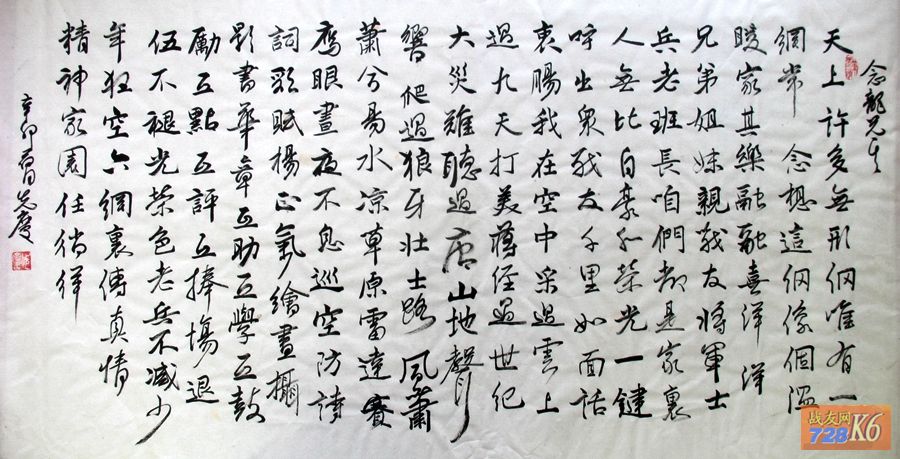 念龍兄
天上許多無形網唯有一
網常念想這網係個溫
暖家其樂融融喜洋洋
兄弟姐妹親戰友將軍士
兵老班長咱們都是家裏
人無比自豪和榮光一鍵
呼出眾戰友千里如面話
衷腸我在空中采過雲上
過九天打美蔣經過世紀
大災難聽過唐山地聲
響爬過狼牙壯士路風蕭
蕭兮易水凉草原雷達賽
鷹眼晝夜不息巡空防詩
詞歌賦揚正氣繪畫攝
影書華章互助互學互鼓
勵互點互評互捧場退
伍不褪光榮色老兵不減少
年狂空六網裏傳真情
精神家園任徜徉
辛卯春月先慶
战友网
728K6